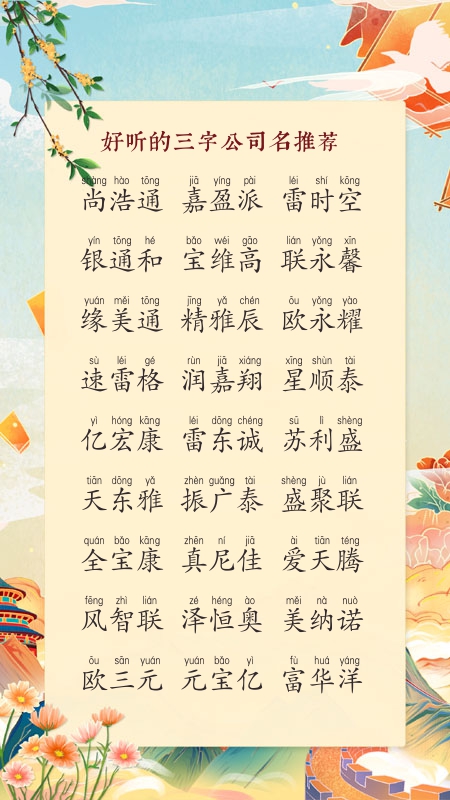 好听的三字公司名推荐
shàng hào tōng jiā yíng pài léi shí kōng
尚浩通 嘉盈派 雷时空
yín tōng hé bǎo wéi gāo lián yǒng xīn
银通和 宝维高 联永馨
yuán měi tōng jīng yǎ chén ōu yǒng yào
缘美通 精雅辰 欧永耀
sù léi gé rùn jiā xiáng xīng shùn tài
速雷格 润嘉翔 星顺泰
yì hóng kāng léi dōng chéng sū lì shèng
亿宏康 雷东诚 苏利盛
tiān dōng yǎ zhèn guǎng tài shèng jù lián
天东雅 振广泰 盛聚联
quán bǎo kāng zhēn ní jiā ài tiān téng
全宝康 真尼佳 爱天腾
fēng zhì lián zé héng ào měi nà nuò
风智联 泽恒奥 美纳诺
ōu sān yuán yuán bǎo yì fù huá yáng
欧三元 元宝亿 富华洋